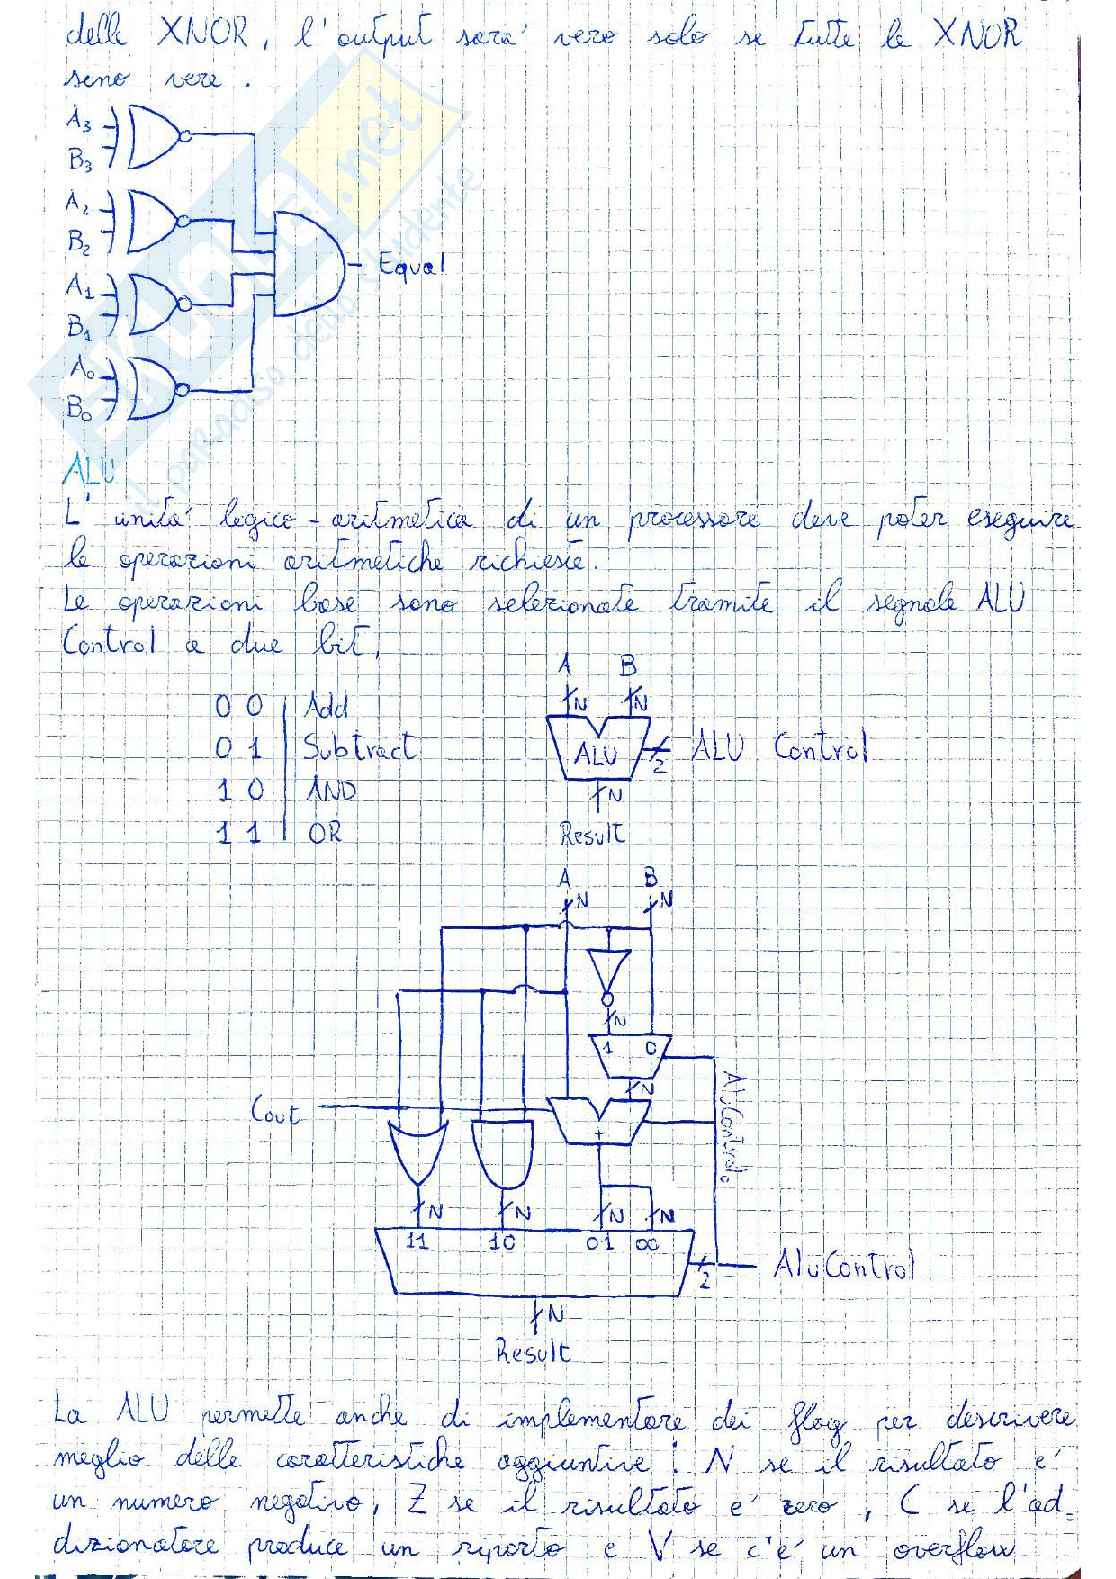 delle XNOR, l'output sara' vero solo se tutte le XNOR
sono vere.
A3
B3
A2
B2
A1
B1
A0
B0
Equal
SKUOLA.net
il paradiso dello studente
ALU
L'unita' logico-aritmetica di un processore deve poter eseguire
le operazioni aritmetiche richieste.
Le operazioni base sono selezionate tramite il segnale ALU
Control a due bit,
0 0 | Add
0 1 | Subtract
1 0 | AND
1 1 | OR
A B
N N
ALU
2 ALU Control
N
Result
A B
N N
N
1 0
N
Cout
+
AluControl0
N N N N
11 10 01 00
2 AluControl
N
Result
La ALU permette anche di implementare dei flag per descrivere
meglio delle caratteristiche aggiuntive: N se il risultato e'
un numero negativo, Z se il risultato e' zero, C se l'ad-
dizionatore produce un riporto e V se c'e' un overflow